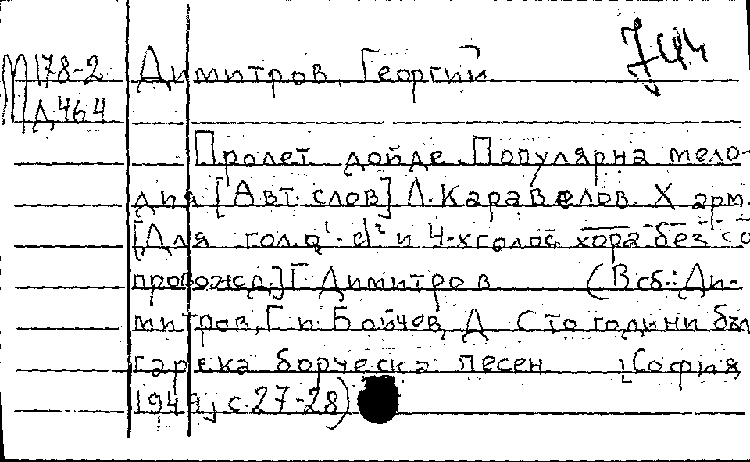 М178-2 Димитров, Георгий
Д464
Пролет дойде. Популярна мело-
дия [Авт. слов] Л. Каравелов. Х арм.
[Для гол. a¹-d² и 4-хголос. хора без со
провожд.] Г. Димитров (В сб.: Ди-
митров, Г. и Бойчев, Д. Сто години бъл
гарска борческа песен [София,
1949, с. 27-28)